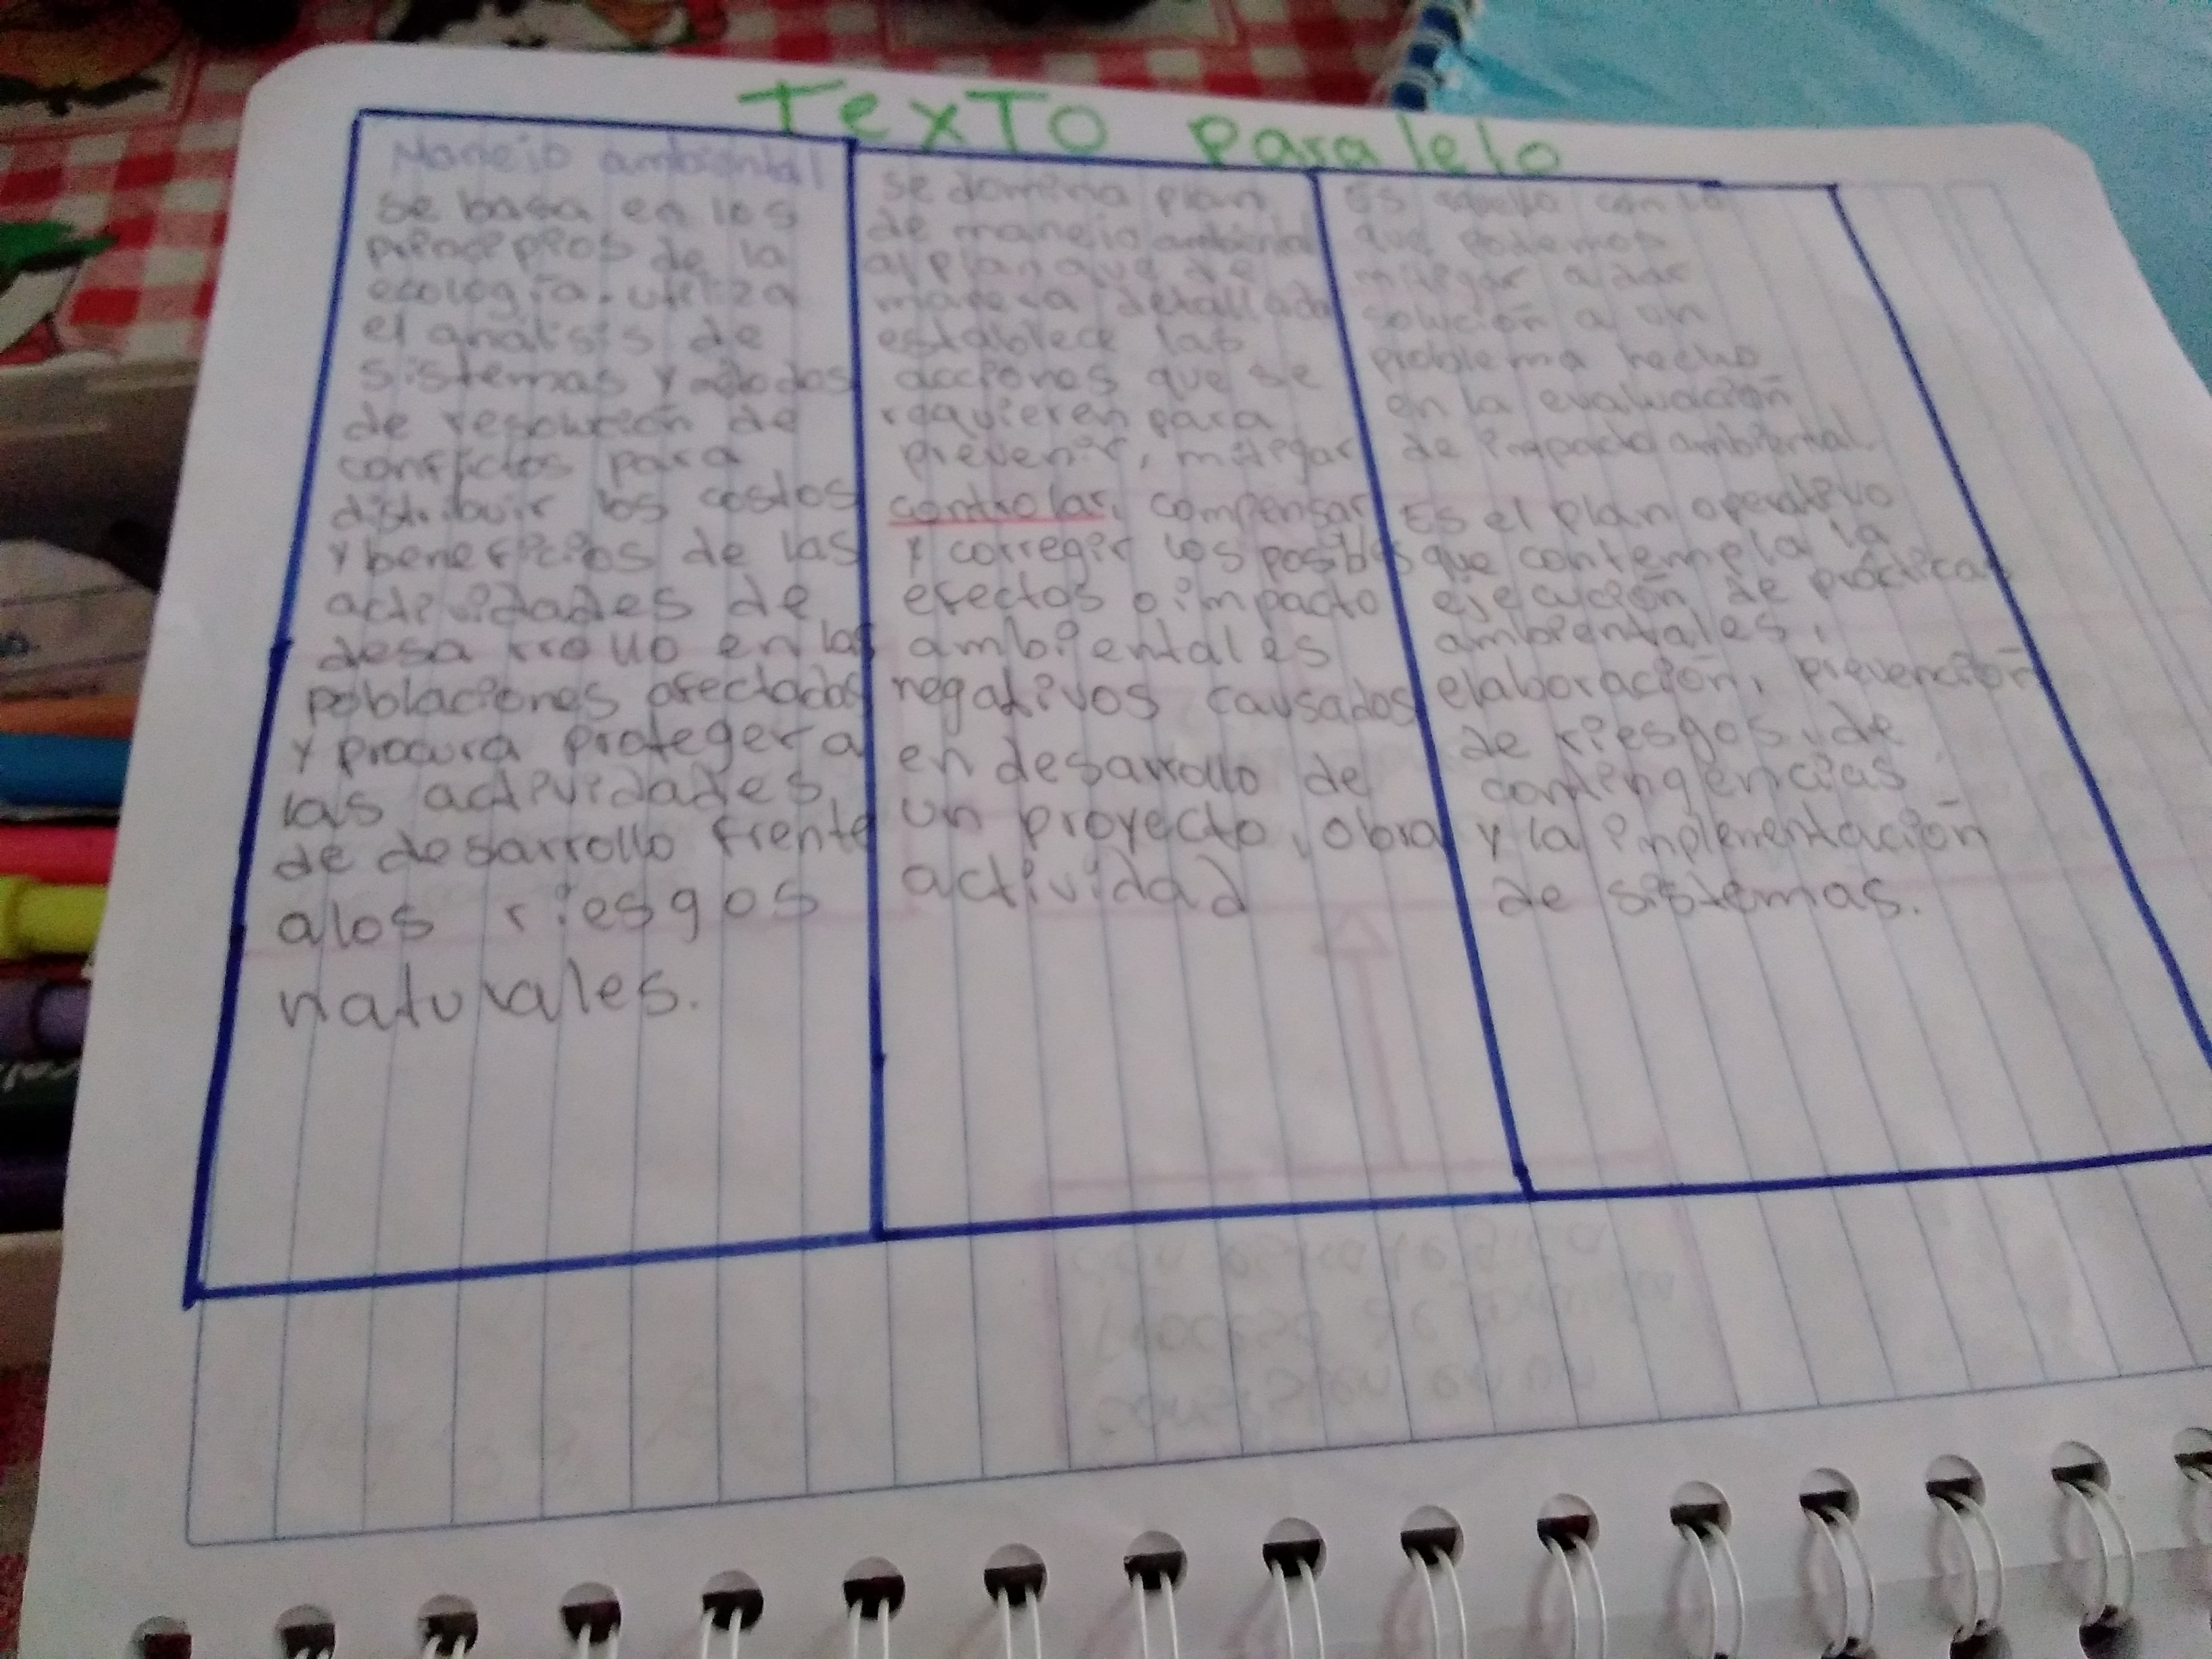 Texto paralelo
Manejo ambiental
se basa en los
principios de la
ecología. utiliza
el análisis de
sistemas y
de resolución de
conflictos para
distribuir los costos
y beneficios de las
actividades de
desarrollo en las
poblaciones afectadas
y procura proteger a
las actividades
de desarrollo frente
alos riesgos
naturales.
se domina plan
de manejo ambiental
al plan que de
manera detallada
establece las
acciones que se
requieren para
prevenir, mitigar
controlar, compensar
y corregir los posibles
efectos o impacto
ambientales
negativos causados
en desarrollo de
un proyecto, obra
actividad
Es aquello con lo
que podemos
mitigar a dar
solución a un
problema hecho
en la evaluación
de impacto ambiental.
Es el plan operativo
que contempla la
ejecución de prácticas
ambientales,
elaboración, prevención
de riesgos, de
contingencias
y la implementación
de sistemas.